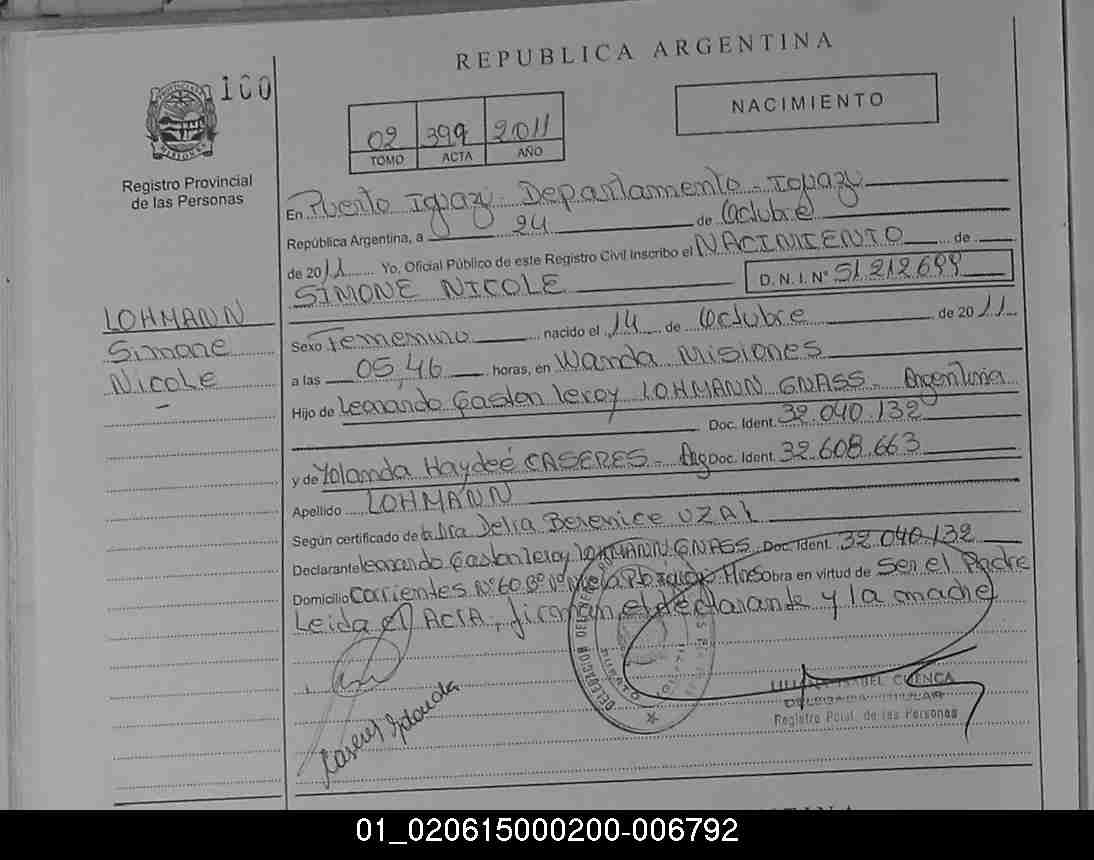 REPUBLICA ARGENTINA
100
NACIMIENTO
02 399 2011
TOMO ACTA AÑO
PROVINCIA DE MISIONES
Registro Provincial
de las Personas
En Puerto Iguazú Departamento - Iguazú
República Argentina, a 24 de Octubre
de 2011 Yo, Oficial Público de este Registro Civil Inscribo el NACIMIENTO de
SIMONE NICOLE D.N.I. Nº 51.212.699
LOHMANN
Simone
Nicole
Sexo Femenino nacido el 14 de Octubre de 2011
a las 05,46 horas, en Wanda Misiones
Hijo de Leonardo Gaston Leroy LOHMANN GNASS - Argentina
Doc. Ident. 32.040.132
y de Yolanda Haydeé CASERES - Arg Doc. Ident. 32.608.663
Apellido LOHMANN
Según certificado de la Dra Delia Berenice UZAL
Declarante Leonardo Gaston Leroy LOHMANN GNASS Doc. Ident. 32.040.132
Domicilio Corrientes Nº 60 Bº Obra en virtud de Ser el Padre
Leida el ACTA, firman, el declarande y la madre
Caseres Yolanda
DELEGACION
ISABEL CUENCA
DELEGADA TITULAR
Registro Pcial. de las Personas
01_020615000200-006792